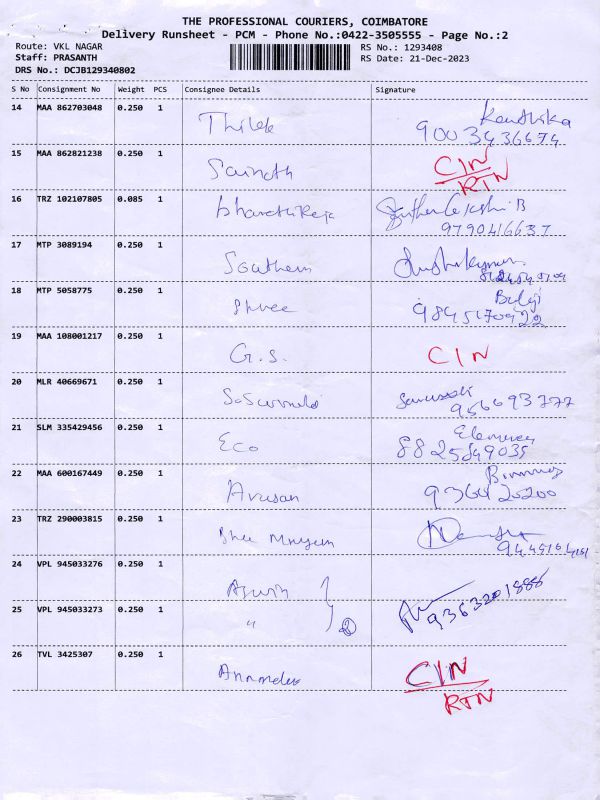 THE PROFESSIONAL COURIERS, COIMBATORE
Delivery Runsheet - PCM - Phone No.:0422-3505555 - Page No.:2
Route: VKL NAGAR RS No.: 1293408
Staff: PRASANTH RS Date: 21-Dec-2023
DRS No.: DCJB129340802
S No Consignment No Weight PCS Consignee Details Signature
14 MAA 862703048 0.250 1 Thilek Kanthika
9003436674
15 MAA 862821238 0.250 1 Sainath CIN
RTN
16 TRZ 102107805 0.085 1 bharathiRaja
9790416637
17 MTP 3089194 0.250 1 Southern
18 MTP 5058775 0.250 1 Shree Balaji
9845170922
19 MAA 108001217 0.250 1 G.S. CIN
20 MLR 40669671 0.250 1
956693777
21 SLM 335429456 0.250 1 Eco
8825849035
22 MAA 600167449 0.250 1
9364220200
23 TRZ 290003815 0.250 1
24 VPL 945033276 0.250 1 Aswin
25 VPL 945033273 0.250 1 " 2 9363201888
26 TVL 3425307 0.250 1 CIN
RTN